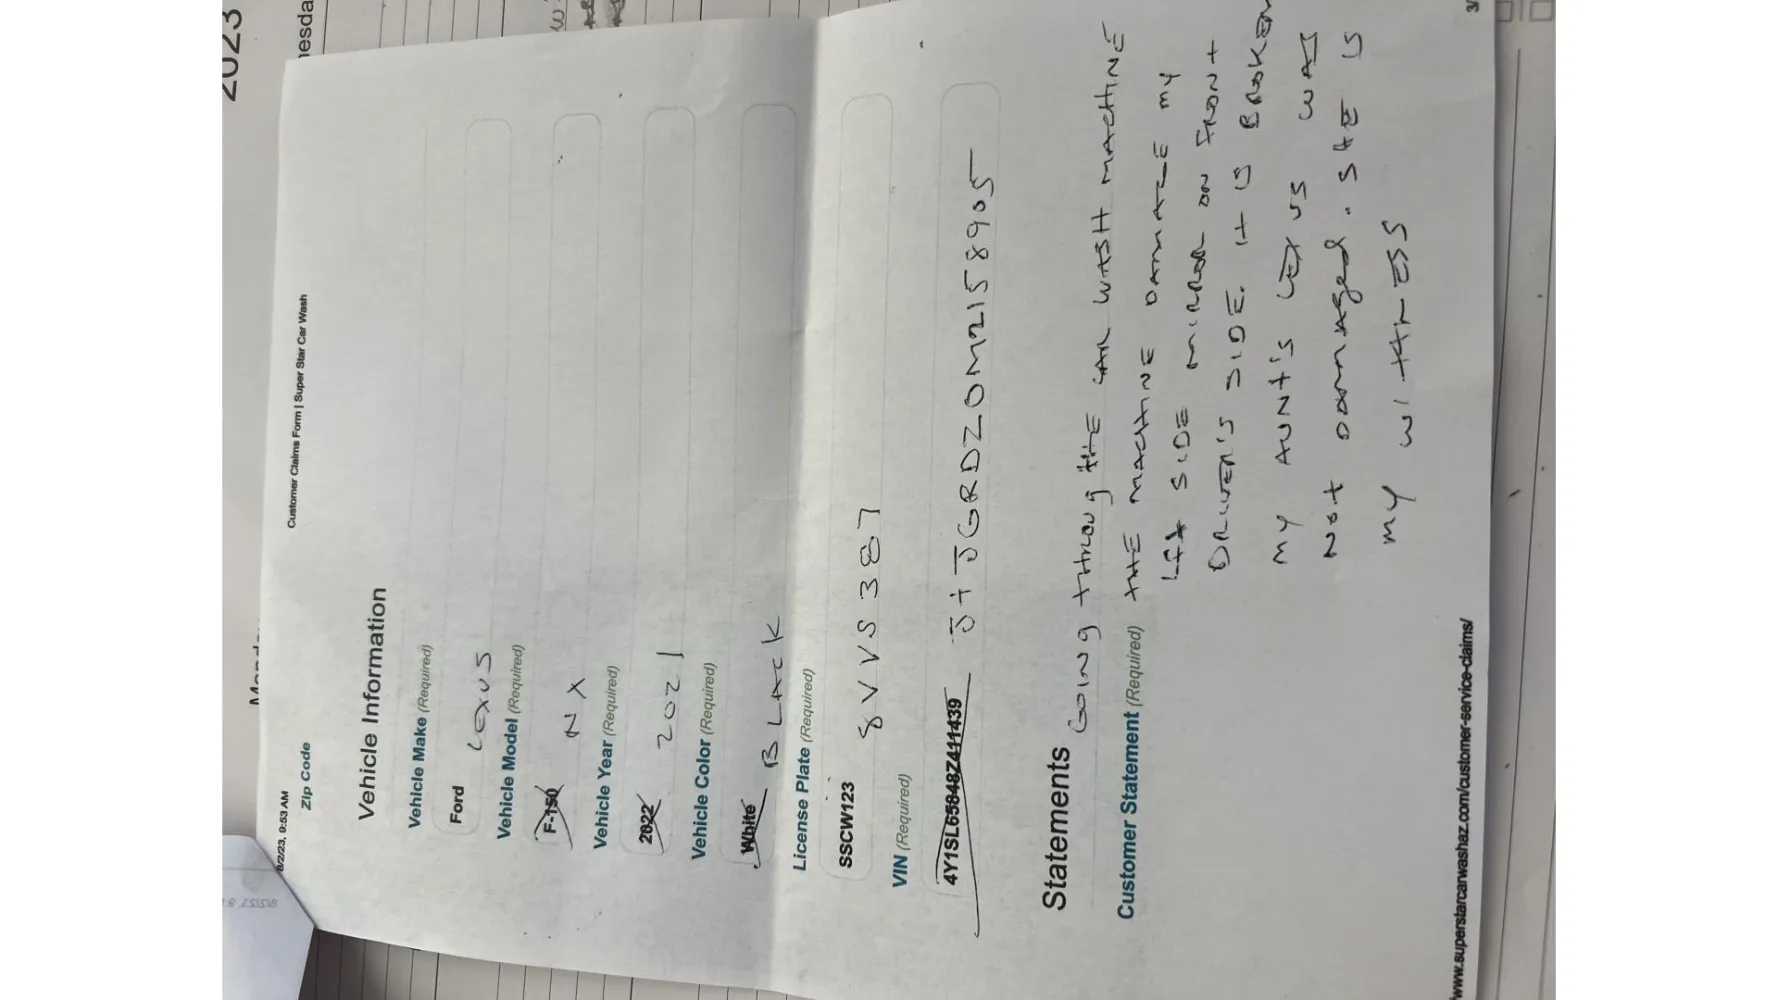 2023
8/2/23, 9:53 AM
Customer Claims Form | Super Star Car Wash
Zip Code
Vehicle Information
Vehicle Make (Required)
Ford
Lexus
Vehicle Model (Required)
F-150
NX
Vehicle Year (Required)
2022
2021
Vehicle Color (Required)
White
BLACK
License Plate (Required)
SSCW123
8VVS387
VIN (Required)
4Y1SL65848Z411439
JTJGRDZ0M2158905
Statements
Customer Statement (Required)
GOING THROUg tHE CAR WASH MACHINE
tHE MACHINE DAMAGE my
SIDE MIRROR ON FRONt
DRIVER'S SIDE. It IS BROKEN
MY AUNt'S LEXUS WAS
Not DAMAged. SHE IS
MY WItNESS
www.superstarcarwashaz.com/customer-service-claims/
3/